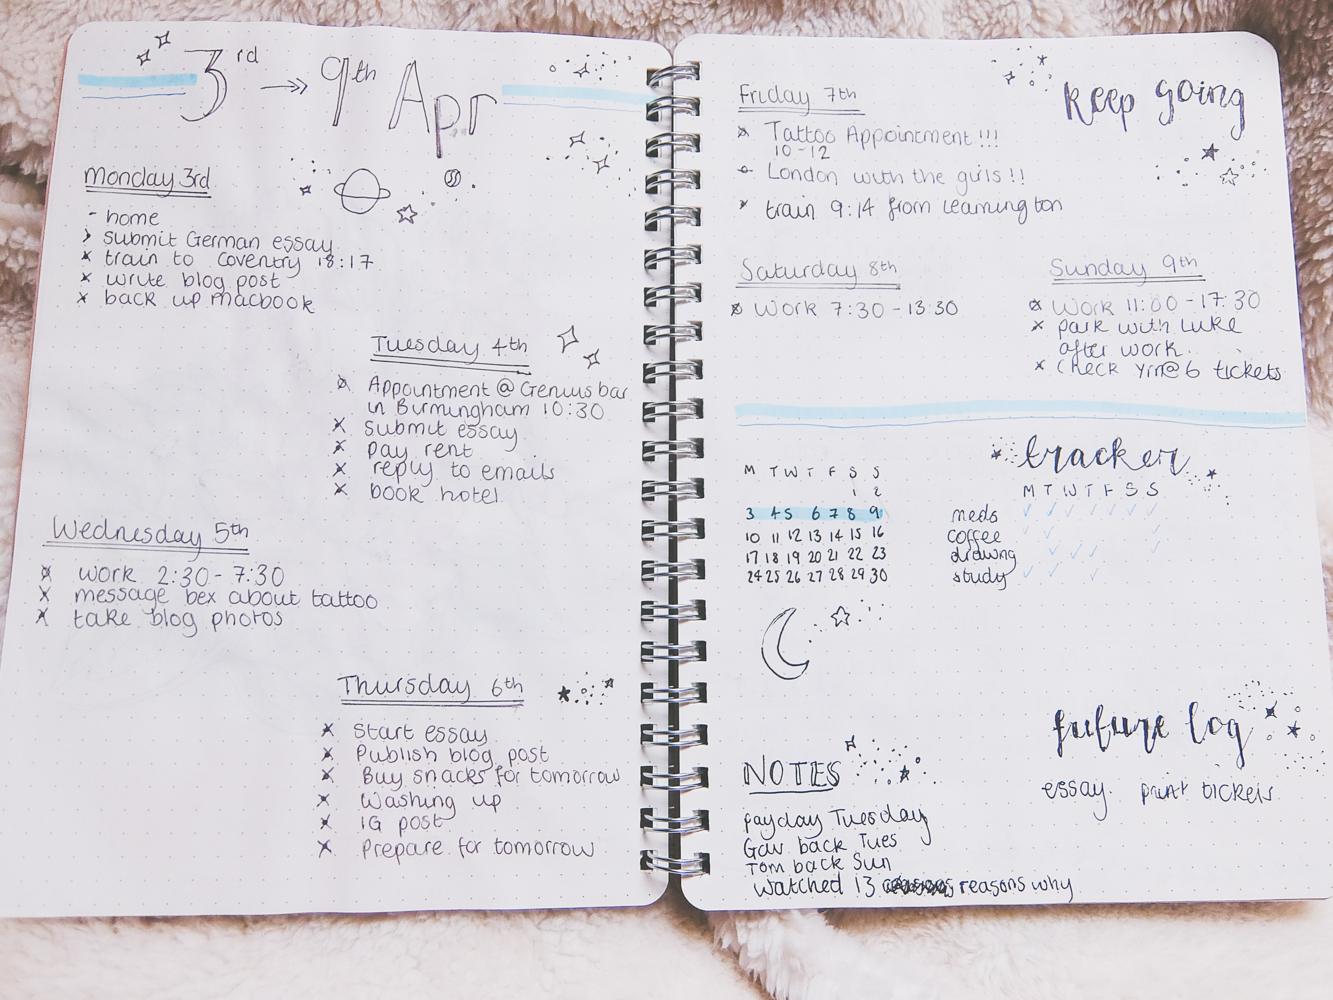 3rd → 9th Apr
Monday 3rd
- home
> submit German essay
x train to Coventry 18:17
x write blog post
x back up macbook
Tuesday 4th
x Appointment @ Genius bar
in Birmingham 10:30
x submit essay
x pay rent
x reply to emails
x book hotel
Wednesday 5th
x work 2:30 - 7:30
x message bex about tattoo
x take blog photos
Thursday 6th
x start essay
x Publish blog post
x Buy snacks for tomorrow
x washing up
x IG post
x Prepare for tomorrow
keep going
Friday 7th
x Tattoo Appointment!!!
10-12
o London with the girls!!
x train 9:14 from Leamington
Saturday 8th
x Work 7:30 - 13:30
Sunday 9th
x Work 11:00 - 17:30
x park with Luke
after work.
x check 6 tickets
M T W T F S S
1 2
3 4 5 6 7 8 9
10 11 12 13 14 15 16
17 18 19 20 21 22 23
24 25 26 27 28 29 30
tracker
M T W T F S S
meds ✓ ✓ ✓ ✓ ✓ ✓ ✓
coffee ✓ ✓
drawing ✓ ✓ ✓ ✓
study ✓ ✓ ✓
NOTES
payday Tuesday
Gav back Tues
Tom back Sun
watched 13 reasons why
future log
essay. print tickets